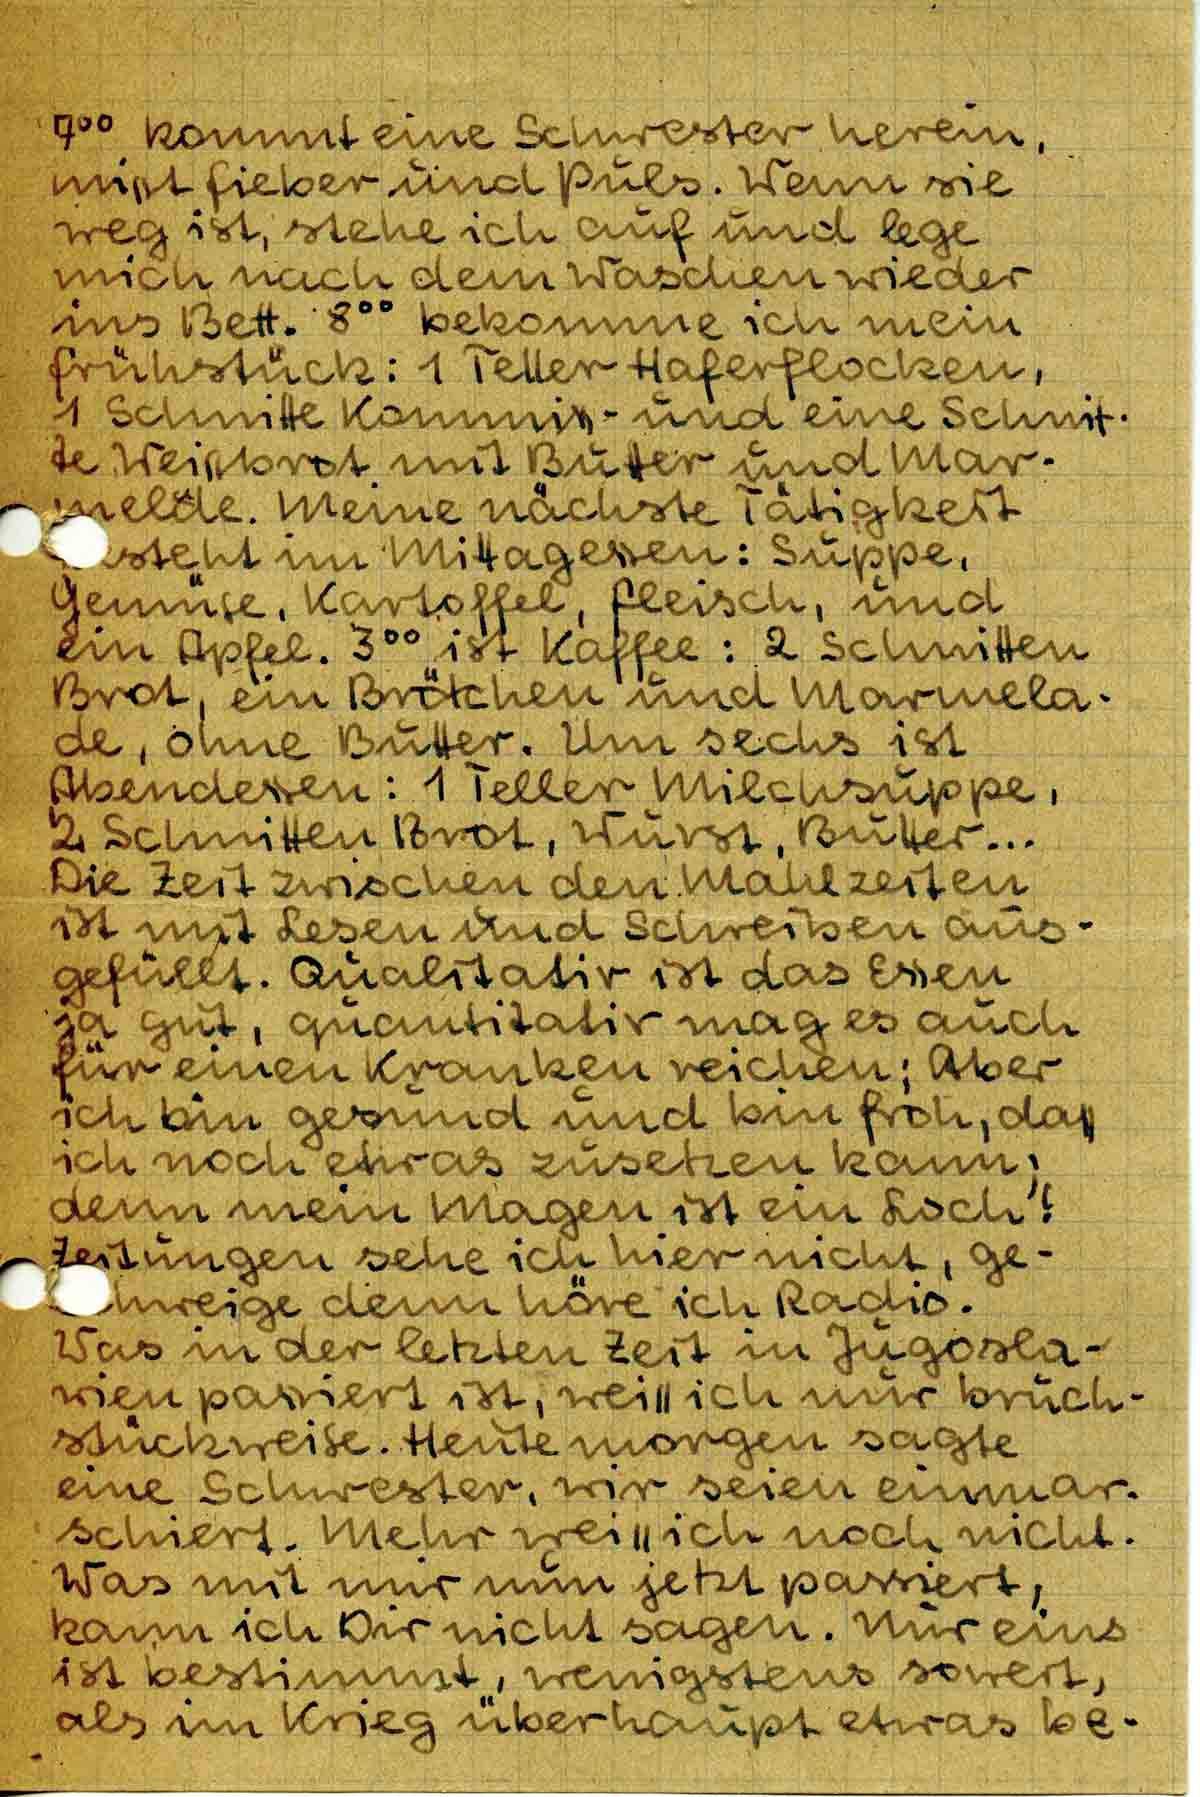 7⁰⁰ kommt eine Schwester herein,
mißt Fieber und Puls. Wenn sie
weg ist, stehe ich auf und lege
mich nach dem Waschen wieder
ins Bett. 8⁰⁰ bekomme ich mein
Frühstück: 1 Teller Haferflocken,
1 Schnitte Kommiß- und eine Schnit-
te Weißbrot mit Butter und Mar-
melde. Meine nächste Tätigkeit
steht im Mittagessen: Suppe,
Gemüse, Kartoffel, Fleisch, und
ein Apfel. 3⁰⁰ ist Kaffee: 2 Schnitten
Brot, ein Brötchen und Marmela-
de, ohne Butter. Um sechs ist
Abendessen: 1 Teller Milchsuppe,
2 Schnitten Brot, Wurst, Butter...
Die Zeit zwischen den Mahlzeiten
ist mit Lesen und Schreiben aus-
gefüllt. Qualitativ ist das Essen
ja gut, quantitativ mag es auch
für einen Kranken reichen; Aber
ich bin gesund und bin froh, daß
ich noch etwas zusetzen kann;
denn mein Magen ist ein Loch!
Zeitungen sehe ich hier nicht, ge-
schweige denn höre ich Radio.
Was in der letzten Zeit in Jugosla-
wien passiert ist, weiß ich nur bruch-
stückweise. Heute morgen sagte
eine Schwester, wir seien einmar-
schiert. Mehr weiß ich noch nicht.
Was mit mir nun jetzt passiert,
kann ich Dir nicht sagen. Nur eins
ist bestimmt, wenigstens soweit,
als im Krieg überhaupt etwas be-